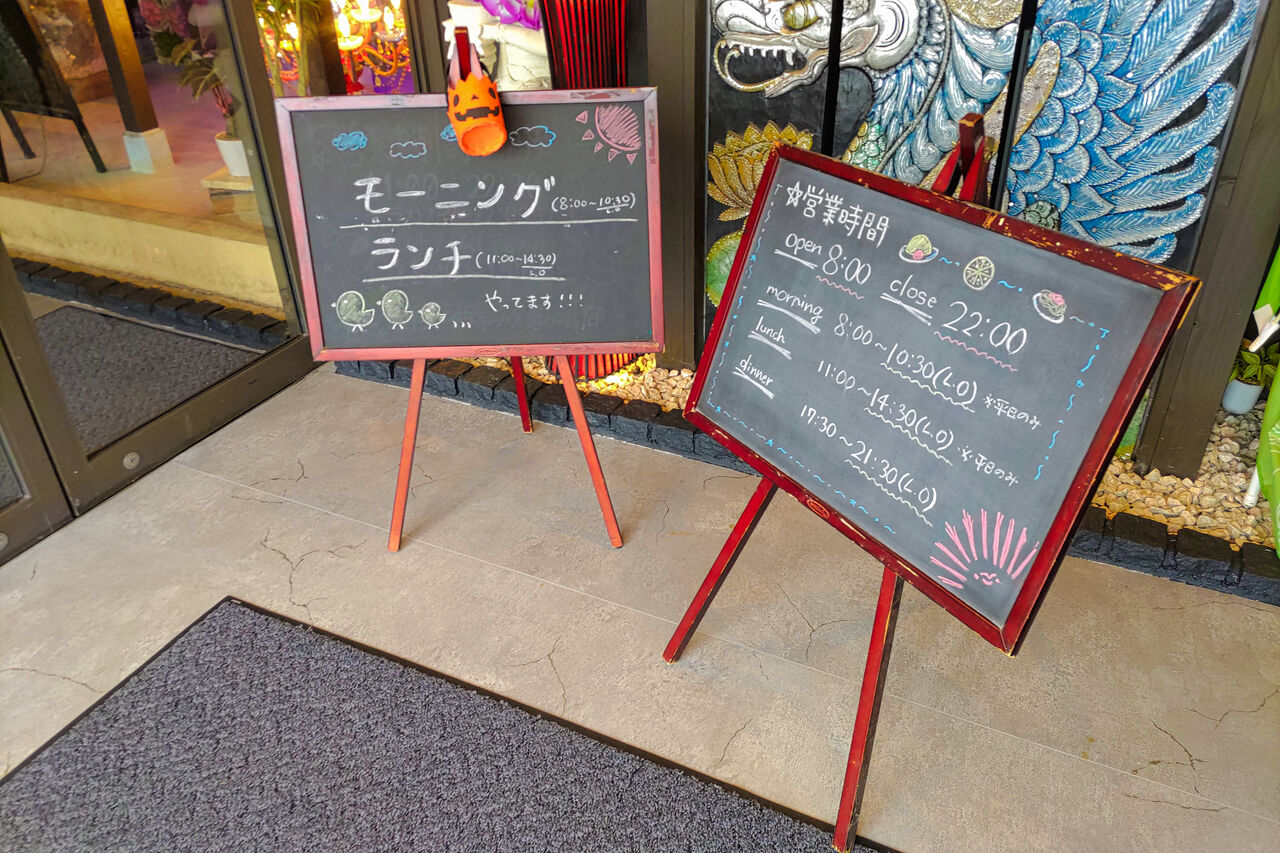 モーニング (8:00~10:30)
L.O
ランチ (11:00~14:30)
L.O
やってます!!!
☆営業時間
open 8:00 close 22:00
morning 8:00~10:30(L.O) ※平日のみ
lunch 11:00~14:30(L.O) ※平日のみ
dinner 17:30~21:30(L.O)